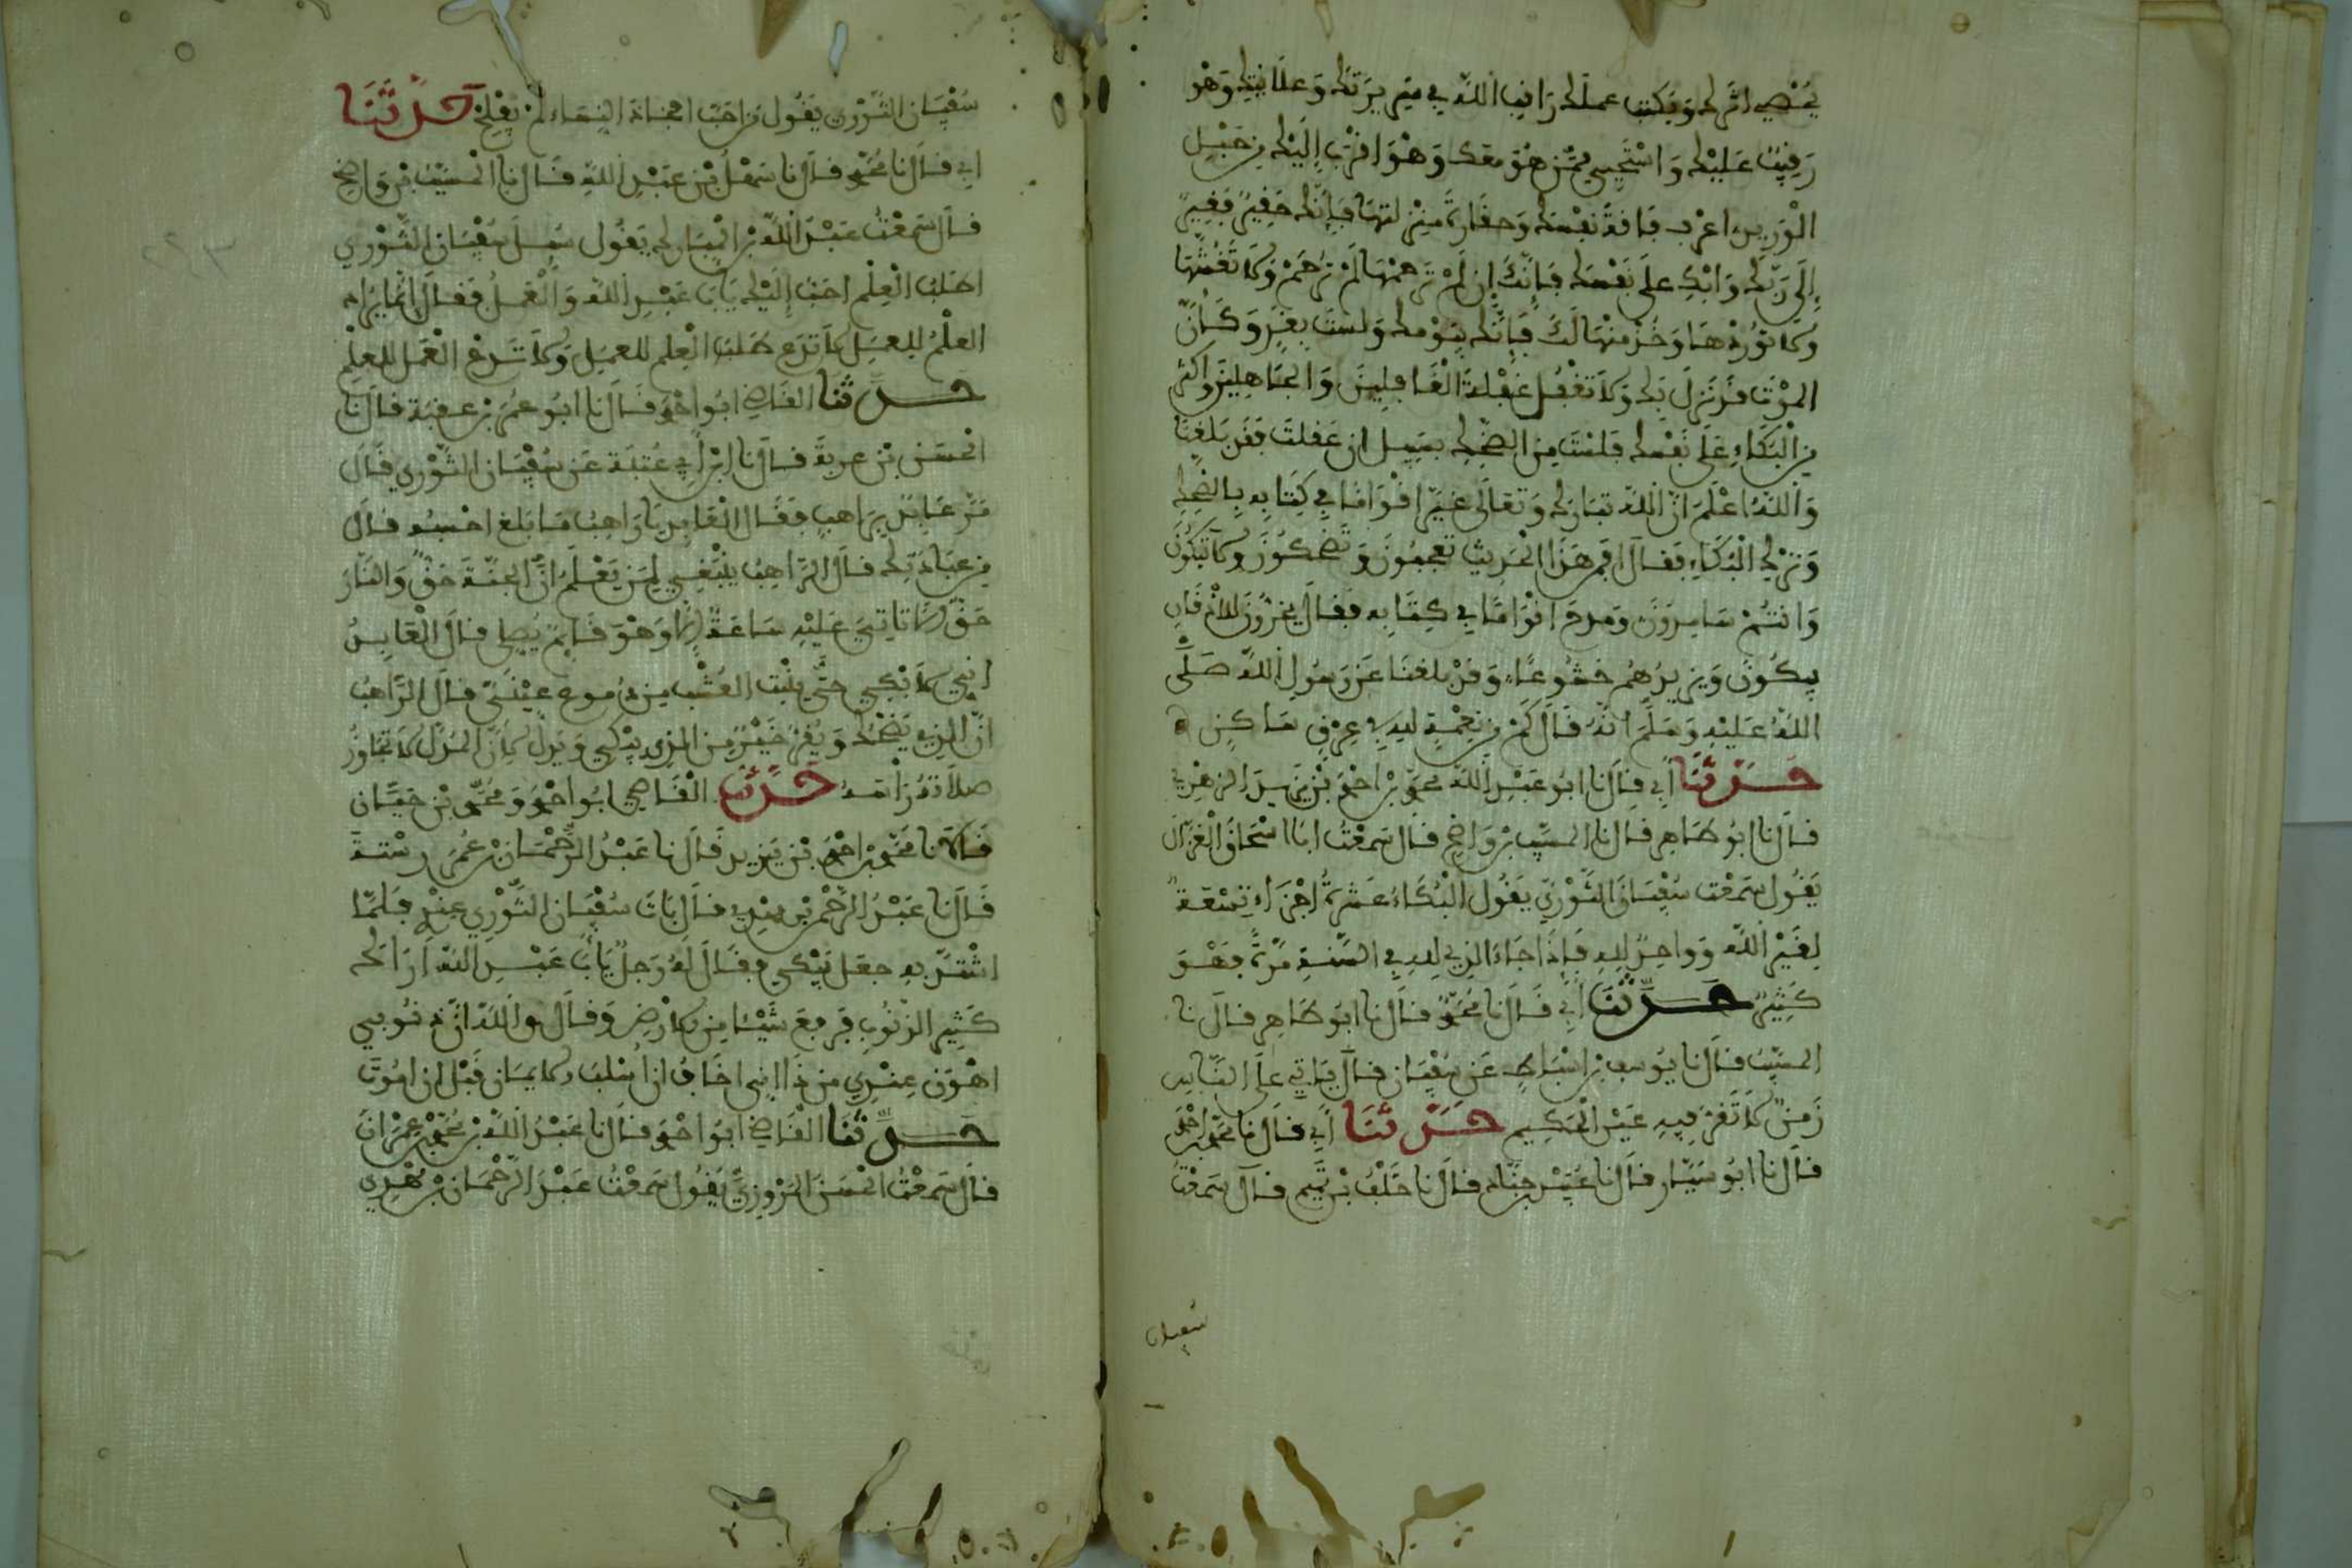 يحصى اثرك ويكتب عملك راقب الله في سريرتك وعلانيتك وهو
رقيب عليك واستحيي ممن هو معك وهو اقرب إليك من حبل
الوريد اعرف فاقة نفسك وحقارة منزلتها فإنك حقير فقير
إلى ربك وابك على نفسك فإنك إن لم ترحمها لم ترحم ولا تغشها
ولا توردها وخذ منها لك فإنك بيومك ولست بغد وكأن
الموت قد نزل بك ولا تغفل غفلة الغافلين والجاهلين واكثر
من البكاء على نفسك فلست من الضحك بسبيل ان عقلت فقد بلغنا
والله اعلم ان الله تبارك وتعالى عير اقواما في كتابه بالضحك
وترك البكاء فقال افمن هذا الحديث تعجبون وتضحكون ولا تبكون
وانتم سامدون ومدح اقواما في كتابه فقال يخرون للاذقان
يبكون ويزيدهم خشوعا وقد بلغنا عن رسول الله صلى
الله عليه وسلم انه قال كم من نعمة لله في عرق ساكن
حدثنا أبي قال نا ابو عبد الله محمد بن احمد بن يزيد الزهري
قال نا ابو طاهر قال نا المسيب بن واضح قال سمعت ابا اسحاق الفزاري
يقول سمعت سفيان الثوري يقول البكاء عشرة اجزاء تسعة
لغير الله وواحد لله فإذا جاء الذي لله في السنة مرة فهو
كثير حدثنا أبي قال نا محمد قال نا ابو طاهر قال نا
المسيب قال نا يوسف بن اسباط عن سفيان قال ياتي على الناس
زمن لا تقر فيه عين الحكيم حدثنا أبي قال نا محمد بن احمد
قال نا ابو سيار قال نا عبيد بن جناد قال نا خلف بن تميم قال سمعت
سفيان
سفيان الثوري يقول من احب افخاذ النساء لم يفلح حدثنا
ابي قال نا محمد قال نا سهل بن عبد الله قال نا المسيب بن واضح
قال سمعت عبد الله بن المبارك يقول سئل سفيان الثوري
اطلب العلم احب إليك يابا عبد الله او العمل فقال إنما يراد
العلم للعمل لا تدع طلب العلم للعمل ولا تدع العمل للعلم
حدثنا القاضي ابو احمد قال نا ابو عمر بن عقبة قال نا
الحسن بن عرفة قال نا ابن أبي عتبة عن سفيان الثوري قال
مر عابد براهب فقال العابد يا راهب ما بلغ احسبه قال
من عبادتك قال الراهب ينبغي لمن يعلم ان الجنة حق والنار
حق الا تاتي عليه ساعة الا وهو قائم يصلي قال العابد
إني لابكي حتى ينبت العشب من دموع عيني قال الراهب
ان الذي يضحك ويقر خير من الذي يبكي ويدل لان المدل لا تجاوز
صلاته راسه حدثنا القاضي ابو احمد ومحمد بن حيان
قالا نا محمد بن احمد بن يزيد قال نا عبد الرحمان بن عمر رستة
قال نا عبد الرحمن بن مهدي قال بات سفيان الثوري عندي فلما
اشتد به جعل يبكي فقال له رجل يابا عبد الله اراك
كثير الذنوب فرفع شيئا من الارض وقال والله ان ذنوبي
اهون عندي من ذا إني اخاف ان اسلب الايمان قبل ان اموت
حدثنا القاضي ابو احمد قال نا عبد الله بن محمد بن عمران
قال سمعت الحسن المروزي يقول سمعت عبد الرحمان بن مهدي